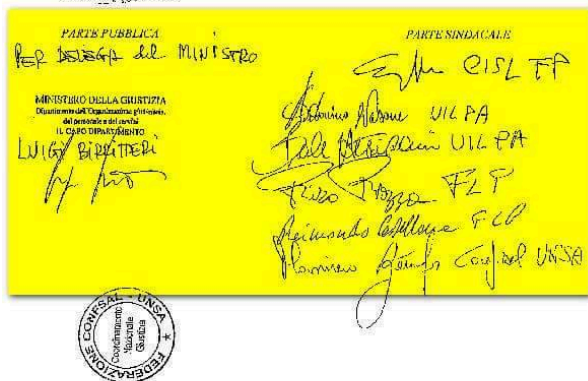 PARTE PUBBLICA
PER DELEGA del MINISTRO
MINISTERO DELLA GIUSTIZIA
Dipartimento dell'Organizzazione giudiziaria,
del personale e dei servizi
IL CAPO DIPARTIMENTO
LUIGI BIRRITTERI
PARTE SINDACALE
CISL FP
UIL PA
UIL PA
Piero Piazza FLP
Raimondo Castellana FLP
Confsal UNSA
FEDERAZIONE CONFSAL - UNSA
Coordinamento
Nazionale
Giustizia